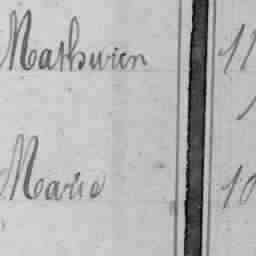 Mathurin 11
Marie 10